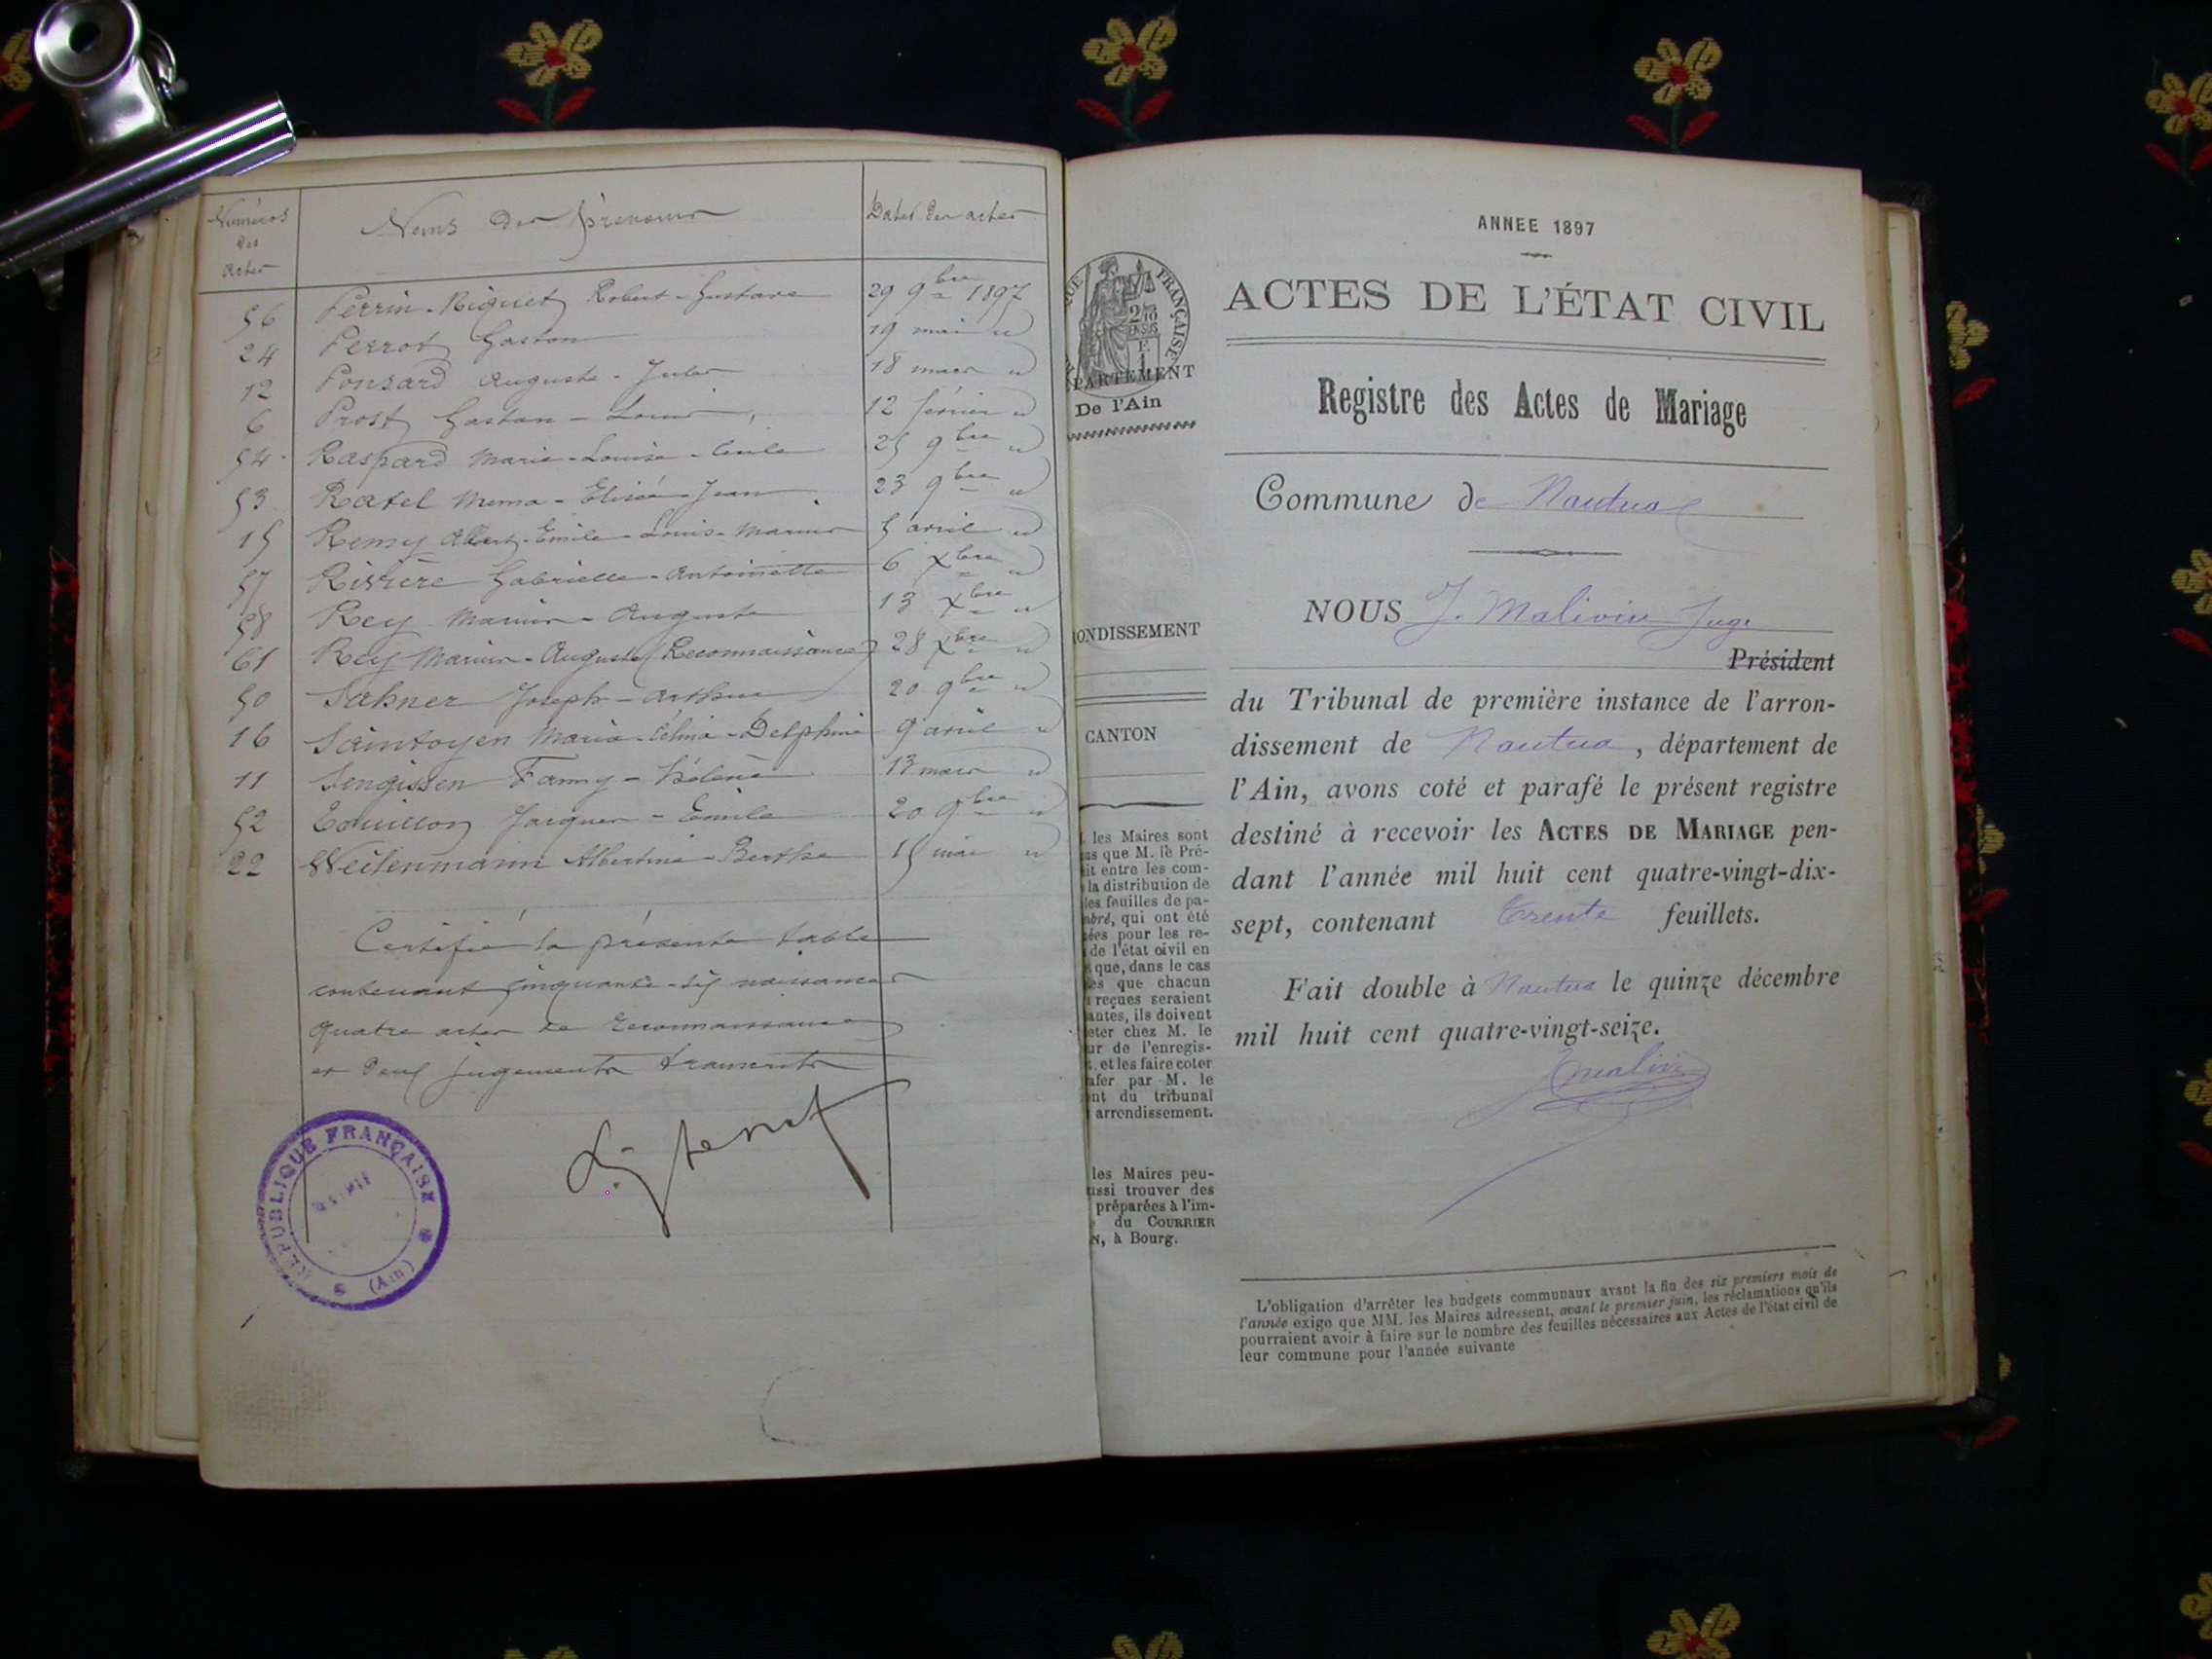 Numéros des actes
Noms des prénoms
Dates des actes
56 Perrin-Riguet Robert-Gustave 29 9bre 1897
24 Perrot Gaston 19 mai "
12 Ponsard Auguste-Jules 18 mars "
6 Prost Gaston-Louis 12 février "
54 Raspard Marie-Louise-Cécile 25 9bre "
53 Ratel Elisée-Jean 23 9bre "
15 Remy Albert-Emile-Louis-Marius 5 avril "
57 Rivière Gabrielle-Antoinette 6 Xbre "
58 Rey Marius-Auguste 13 Xbre "
61 Rey Marius-Auguste (Reconnaissance) 28 Xbre "
50 Sahner Joseph-Arthur 20 9bre "
16 Saintoyen Maria-Célina-Delphine 9 avril "
11 Sengissen Fanny-Hélène 13 mars "
52 Touillon Jacques-Emile 20 9bre "
22 Weilenmann Albertine-Berthe 15 mai "
Certifié la présente table
contenant cinquante-six naissances
quatre actes de reconnaissance
et deux jugements transcrits
RÉPUBLIQUE FRANÇAISE
(Ain)
QUE FRANÇAISE
2/10 EN SUS
F.
1
PARTEMENT
De l'Ain
ONDISSEMENT
CANTON
les Maires sont
as que M. le Pré-
it entre les com-
la distribution de
es feuilles de pa-
mbré, qui ont été
ées pour les re-
de l'état civil en
que, dans le cas
es que chacun
reçues seraient
antes, ils doivent
eter chez M. le
ur de l'enregis-
, et les faire coter
afer par M. le
nt du tribunal
arrondissement.
les Maires peu-
ussi trouver des
préparées à l'im-
du COURRIER
N, à Bourg.
ANNEE 1897
ACTES DE L'ÉTAT CIVIL
Registre des Actes de Mariage
Commune de Nantua
NOUS J. Malivin Juge
Président
du Tribunal de première instance de l'arron-
dissement de Nantua, département de
l'Ain, avons coté et parafé le présent registre
destiné à recevoir les ACTES DE MARIAGE pen-
dant l'année mil huit cent quatre-vingt-dix-
sept, contenant Trente feuillets.
Fait double à Nantua le quinze décembre
mil huit cent quatre-vingt-seize.
Malivin
L'obligation d'arrêter les budgets communaux avant la fin des six premiers mois de
l'année exige que MM. les Maires adressent, avant le premier juin, les réclamations qu'ils
pourraient avoir à faire sur le nombre des feuilles nécessaires aux Actes de l'état civil de
leur commune pour l'année suivante